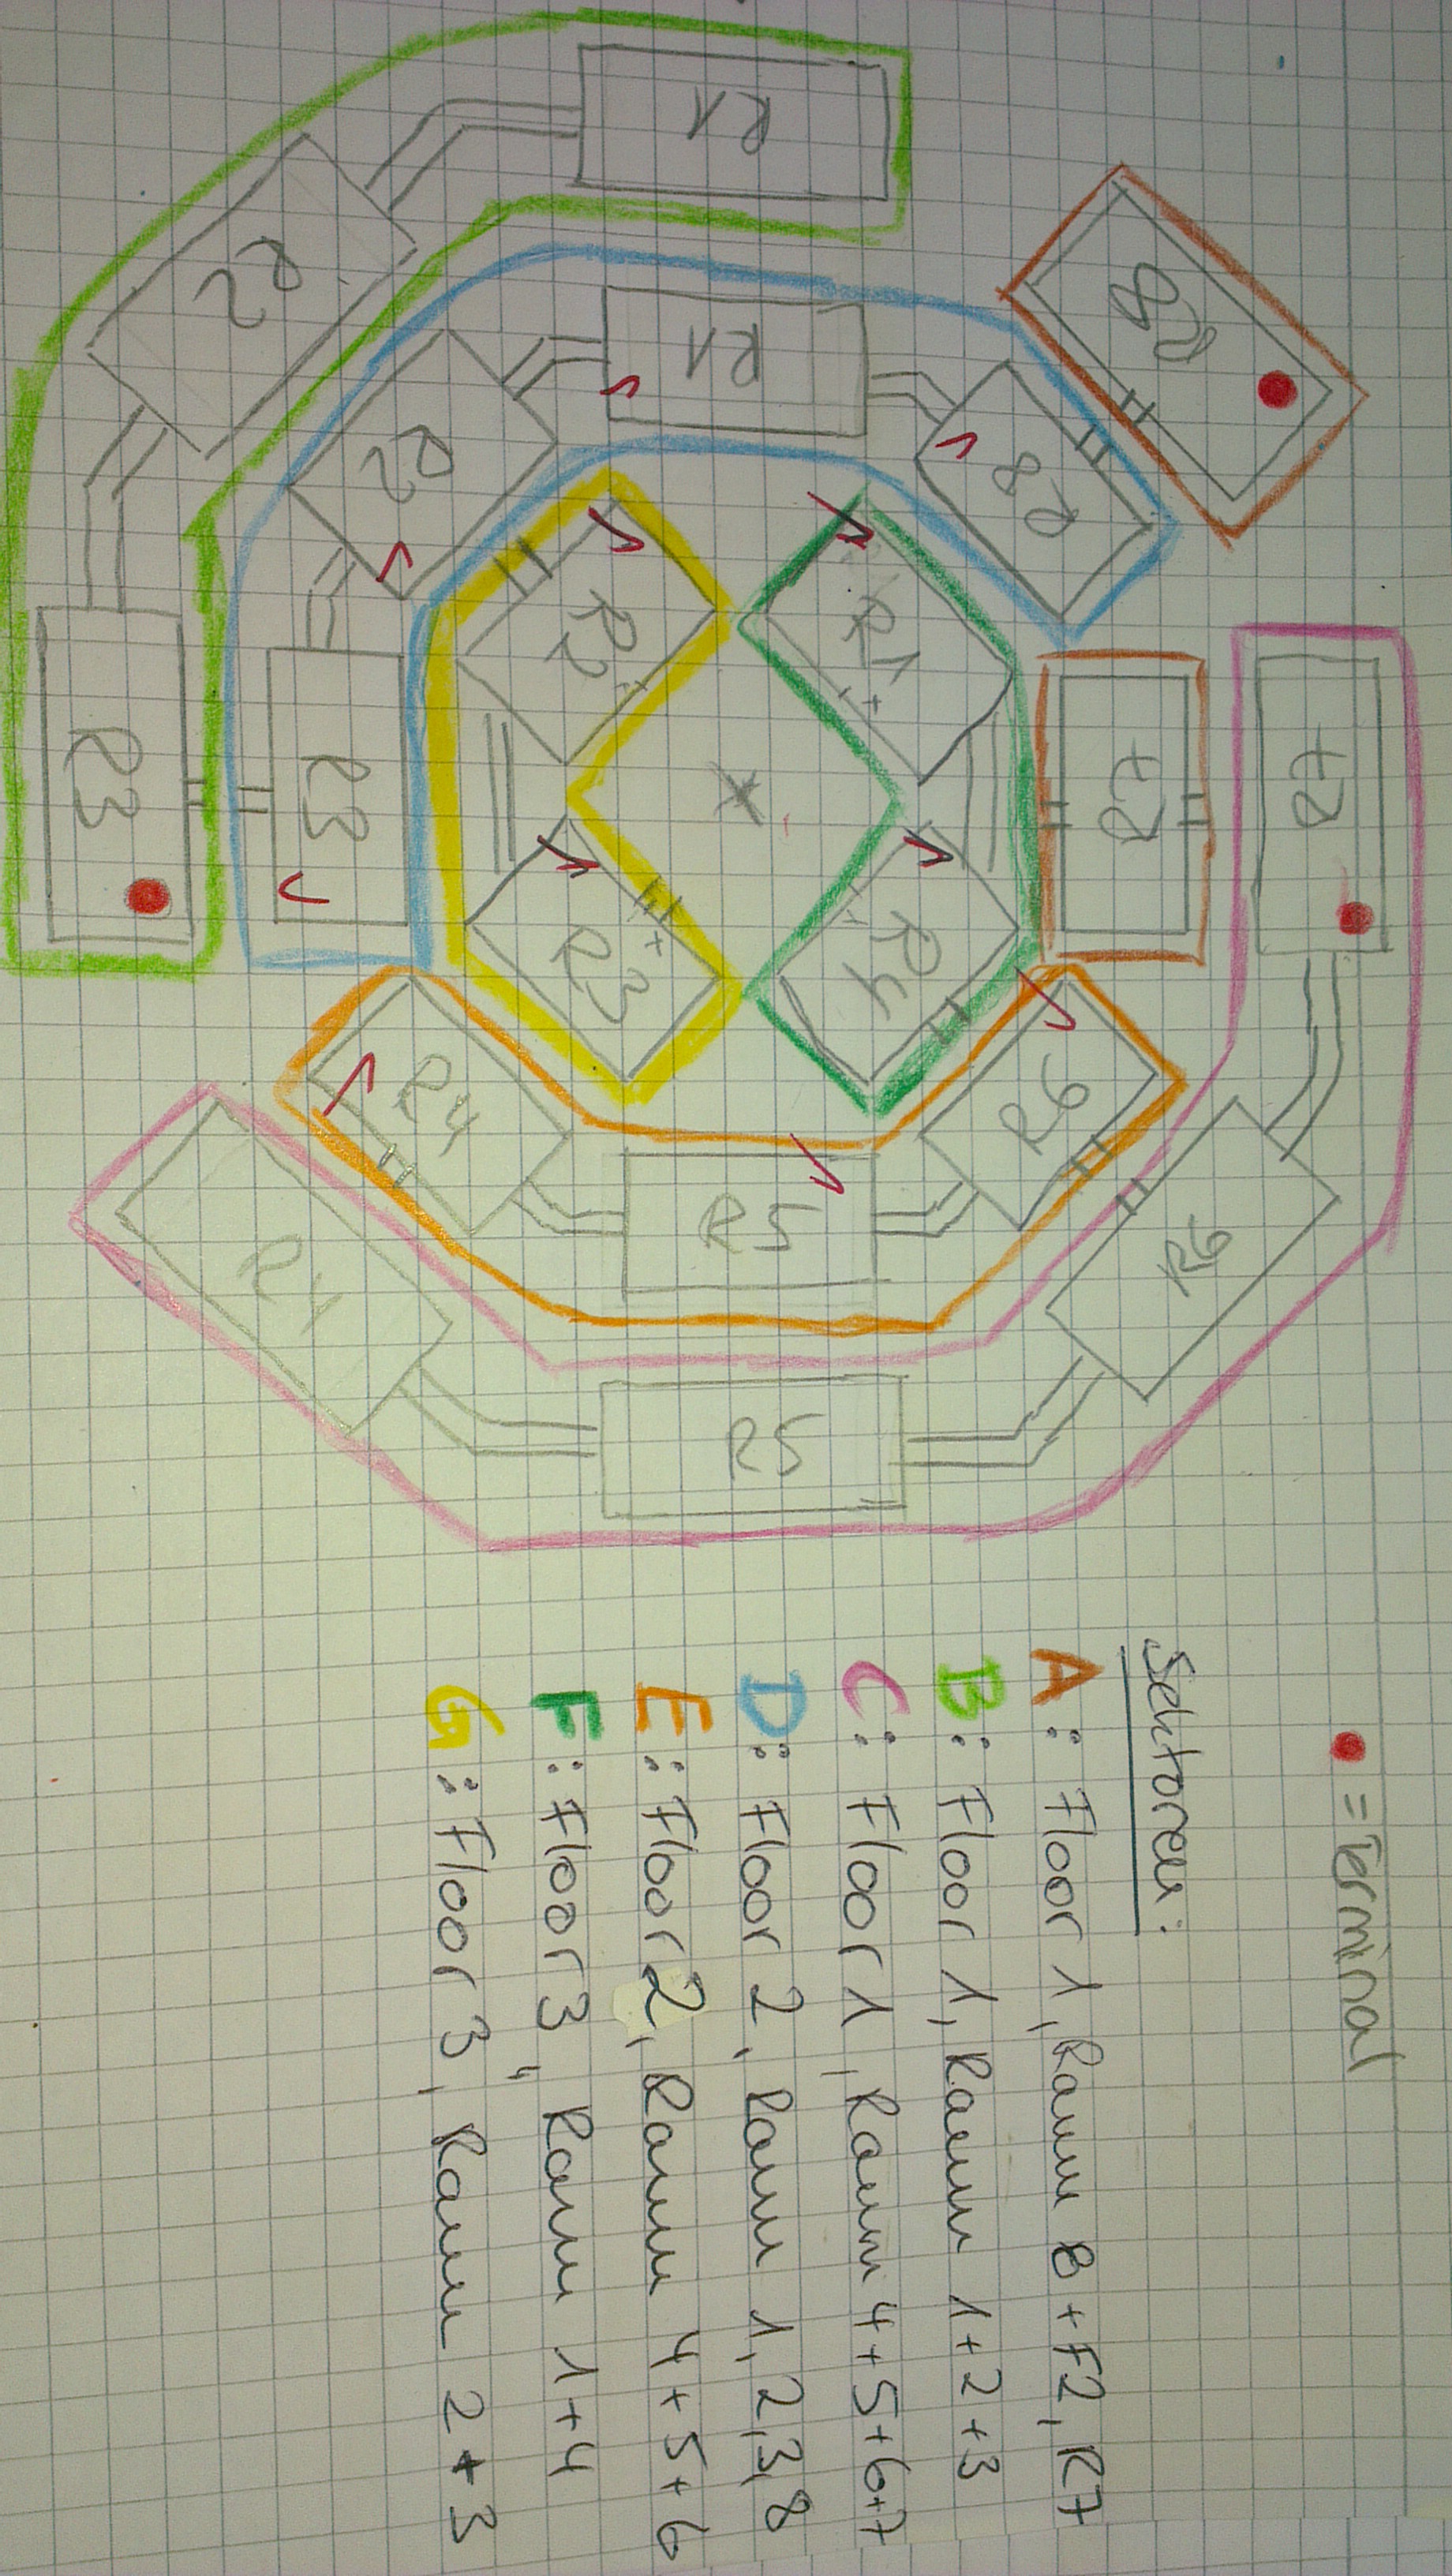 R1
R2
R3
R8
R1
R2
R3
R8
R7
R7
R1
R2
R3
R4
R4
R5
R6
R4
R5
R6
● = Terminal
Sektoren:
A: Floor 1, Raum 8 + F2, R7
B: Floor 1, Raum 1+2+3
C: Floor 1, Raum 4+5+6+7
D: Floor 2, Raum 1, 2, 3, 8
E: Floor 2, Raum 4+5+6
F: Floor 3, Raum 1+4
G: Floor 3, Raum 2+3